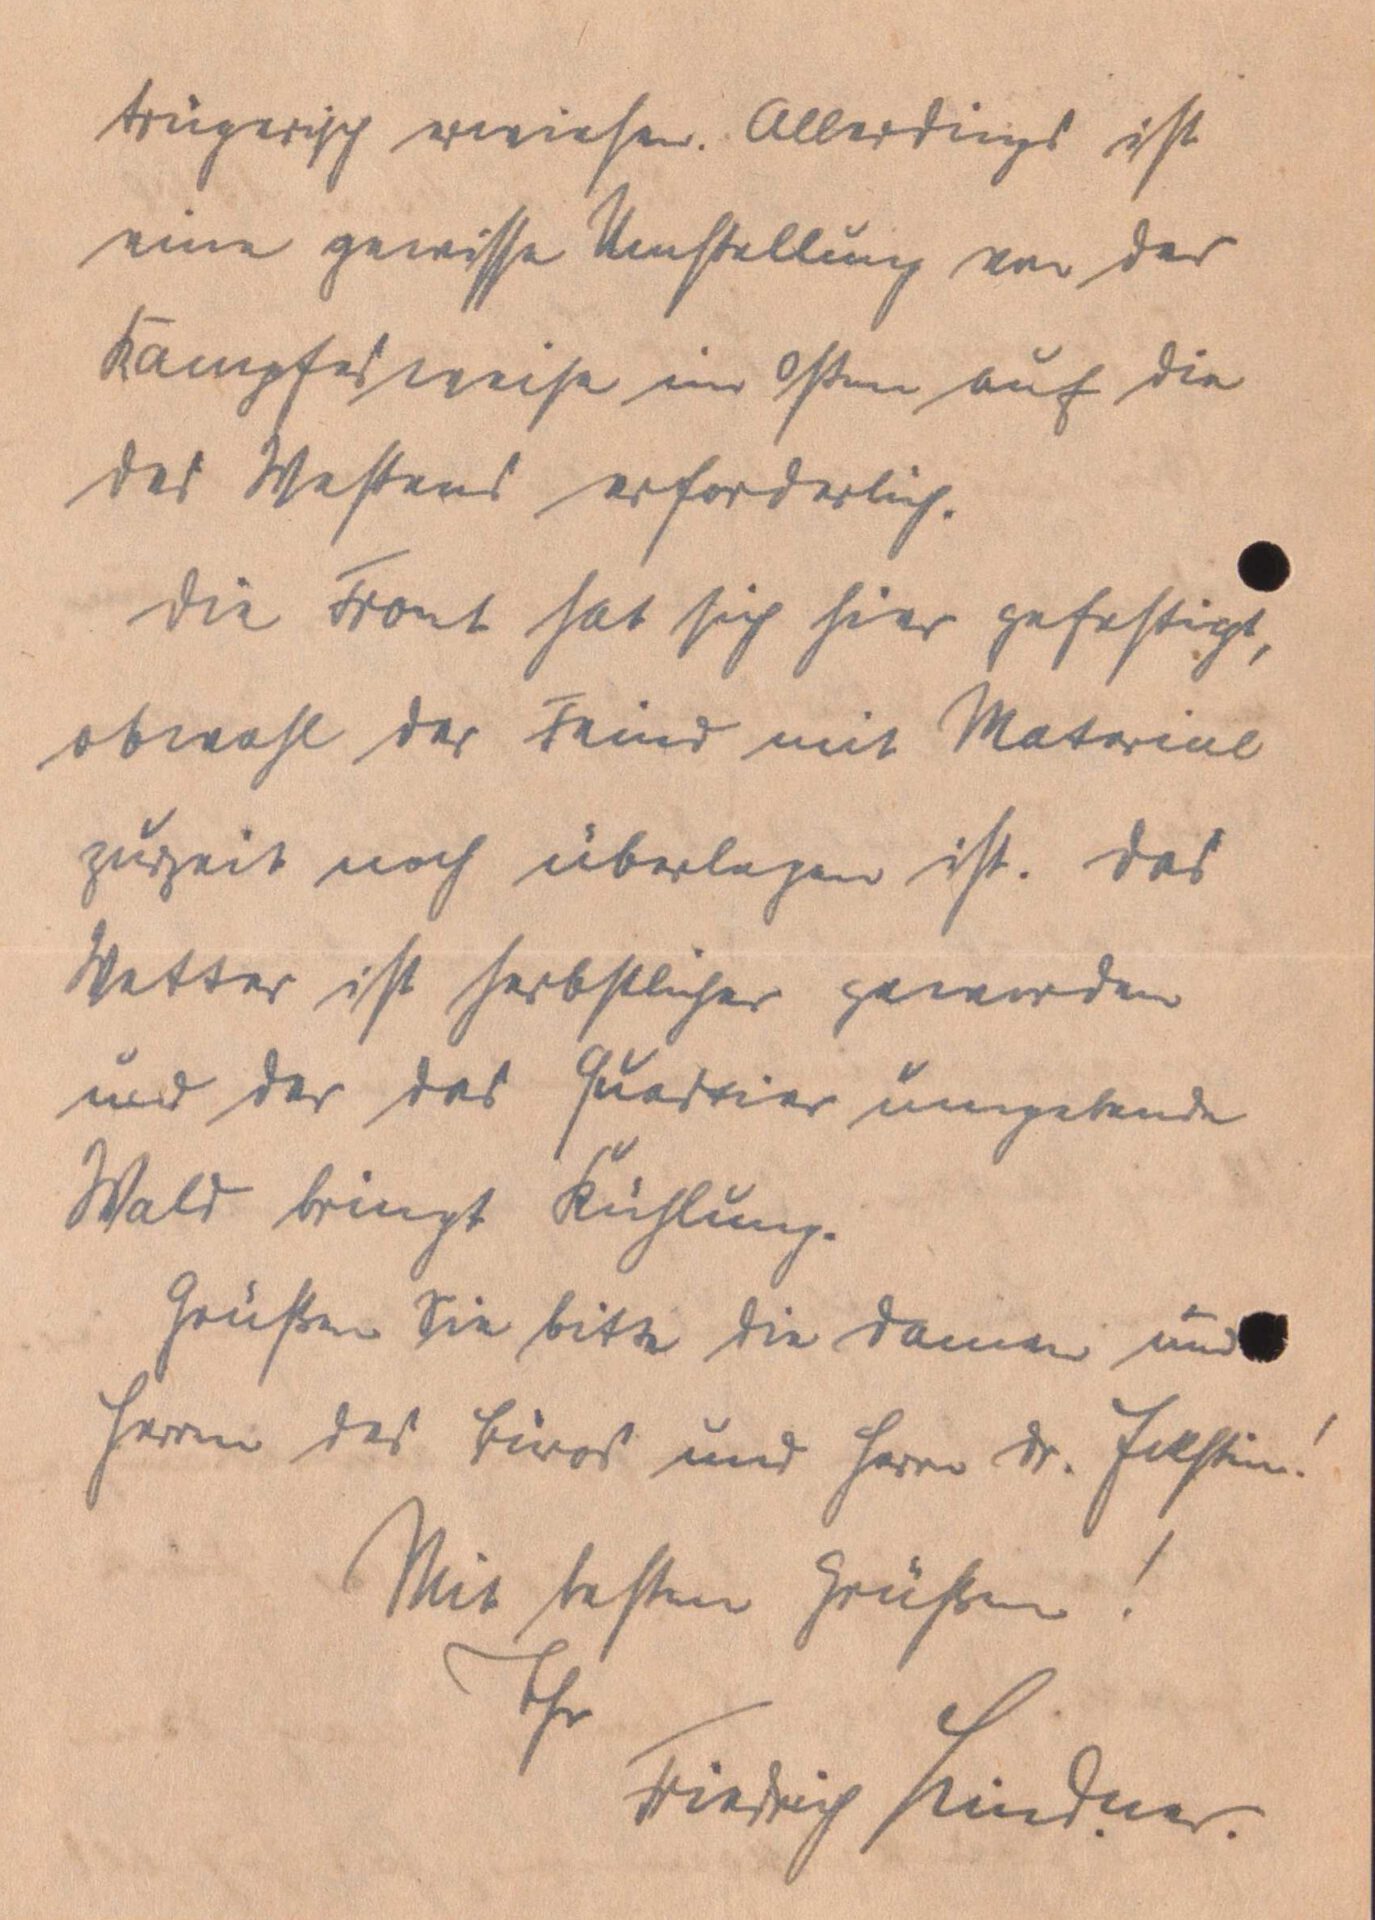 trügerisch erwiesen. Allerdings ist
eine gewisse Umstellung von der
Kampfesweise im Osten auf die
des Westens erforderlich.
Die Front hat sich hier gefestigt,
obwohl der Feind mit Material
zurzeit noch überlegen ist. Das
Wetter ist herbstlicher geworden
und der das Quartier umgebende
Wald bringt Kühlung.
Grüßen Sie bitte die Damen und
Herren des Büros und Herrn Dr.
Mit besten Grüßen!
Ihr
Friedrich Lindner.